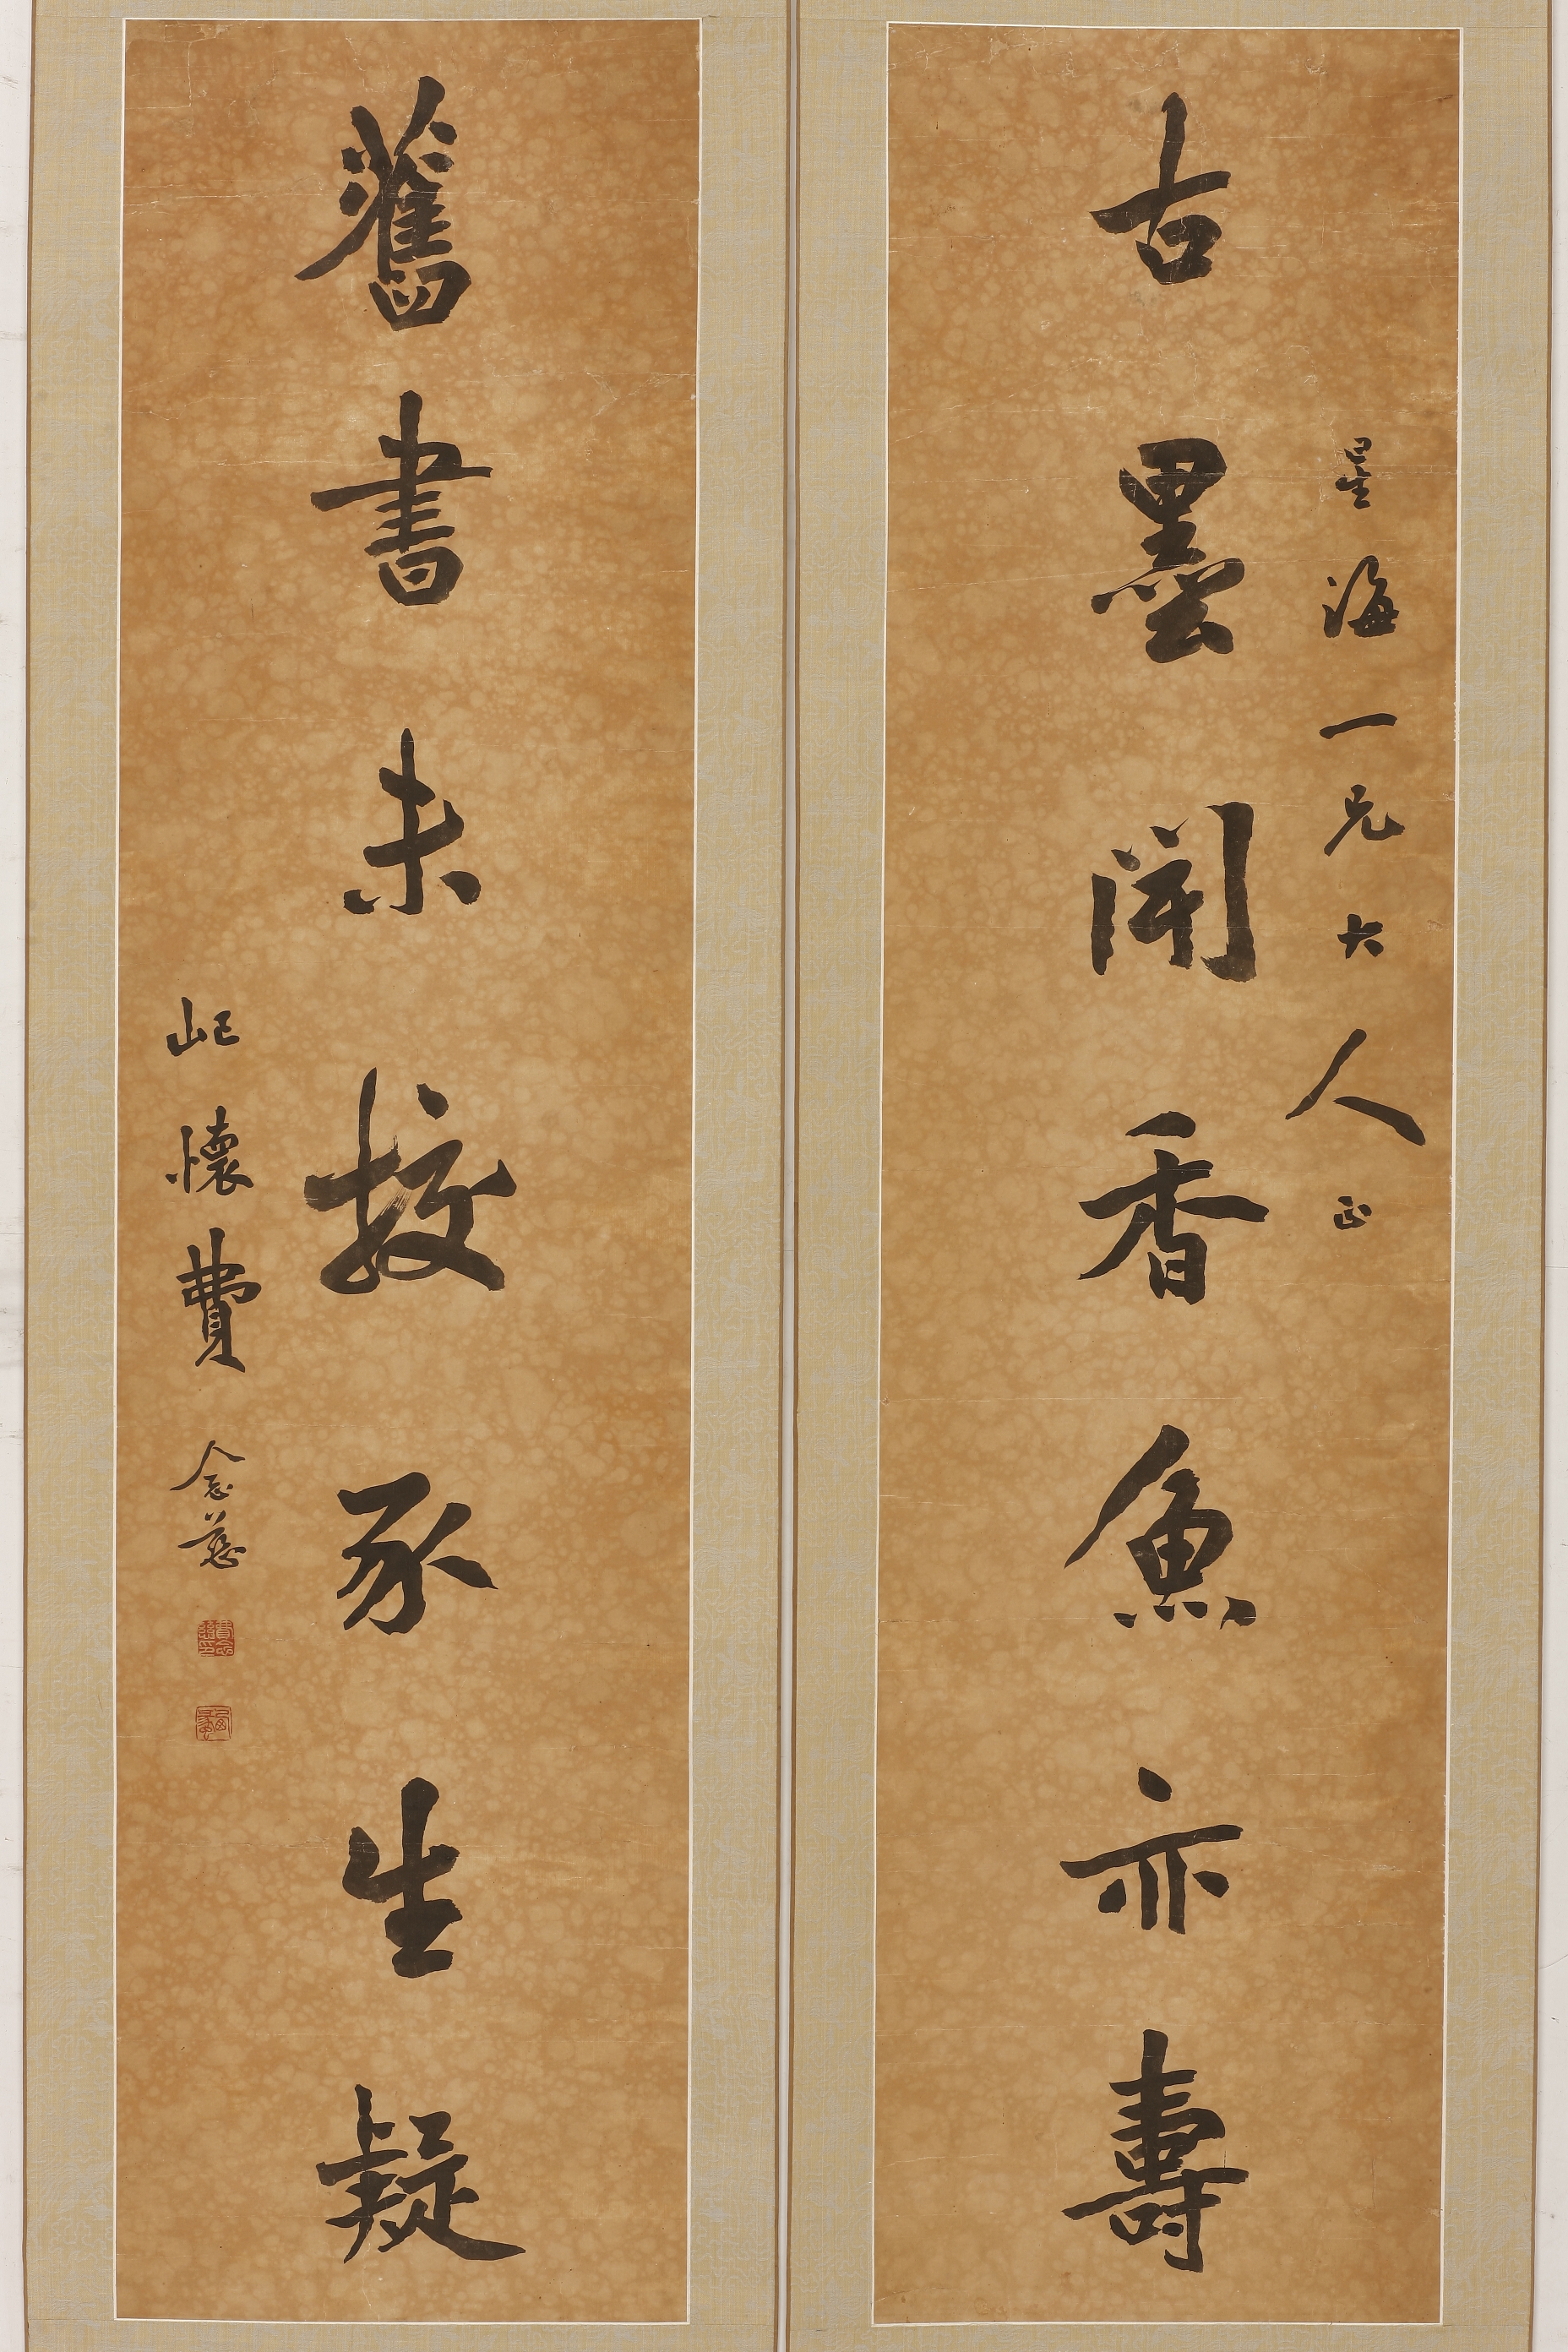 星海一兄大人正
古墨聞香魚亦壽
舊書未校豕生疑
屺懷費念慈
費念慈印